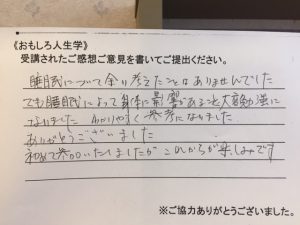 《おもしろ人生学》
受講されたご感想ご意見を書いてご提出ください。
睡眠について余り考えたことはありませんでした
でも睡眠によって身体に影響があること大変勉強に
なりました わかりやすく参考になりました
ありがとうございました
初めて参加いたしましたが これからが楽しみです
※ご協力ありがとうございました。